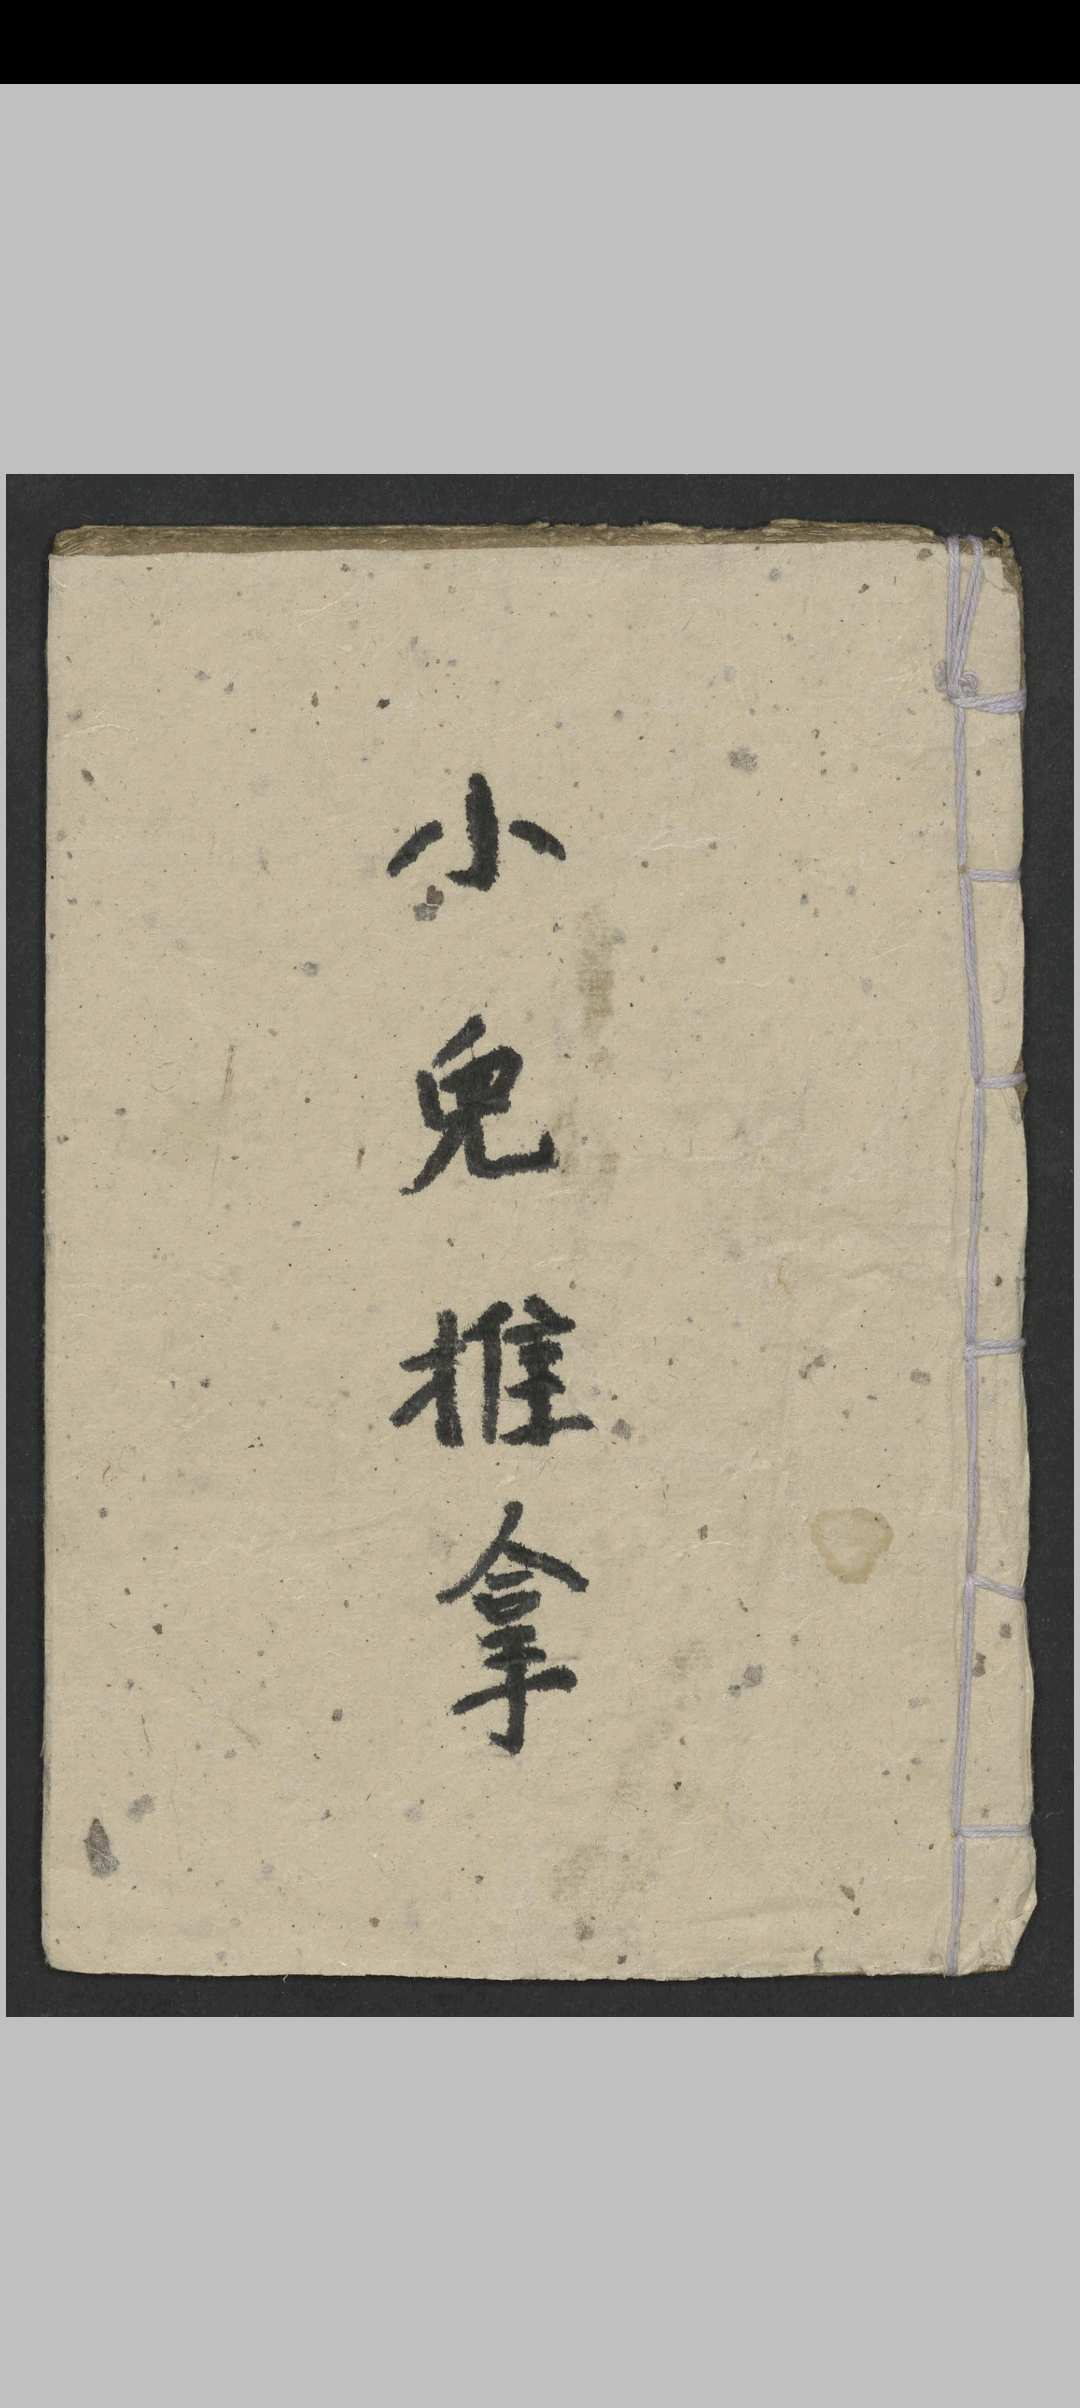 小兒推拿